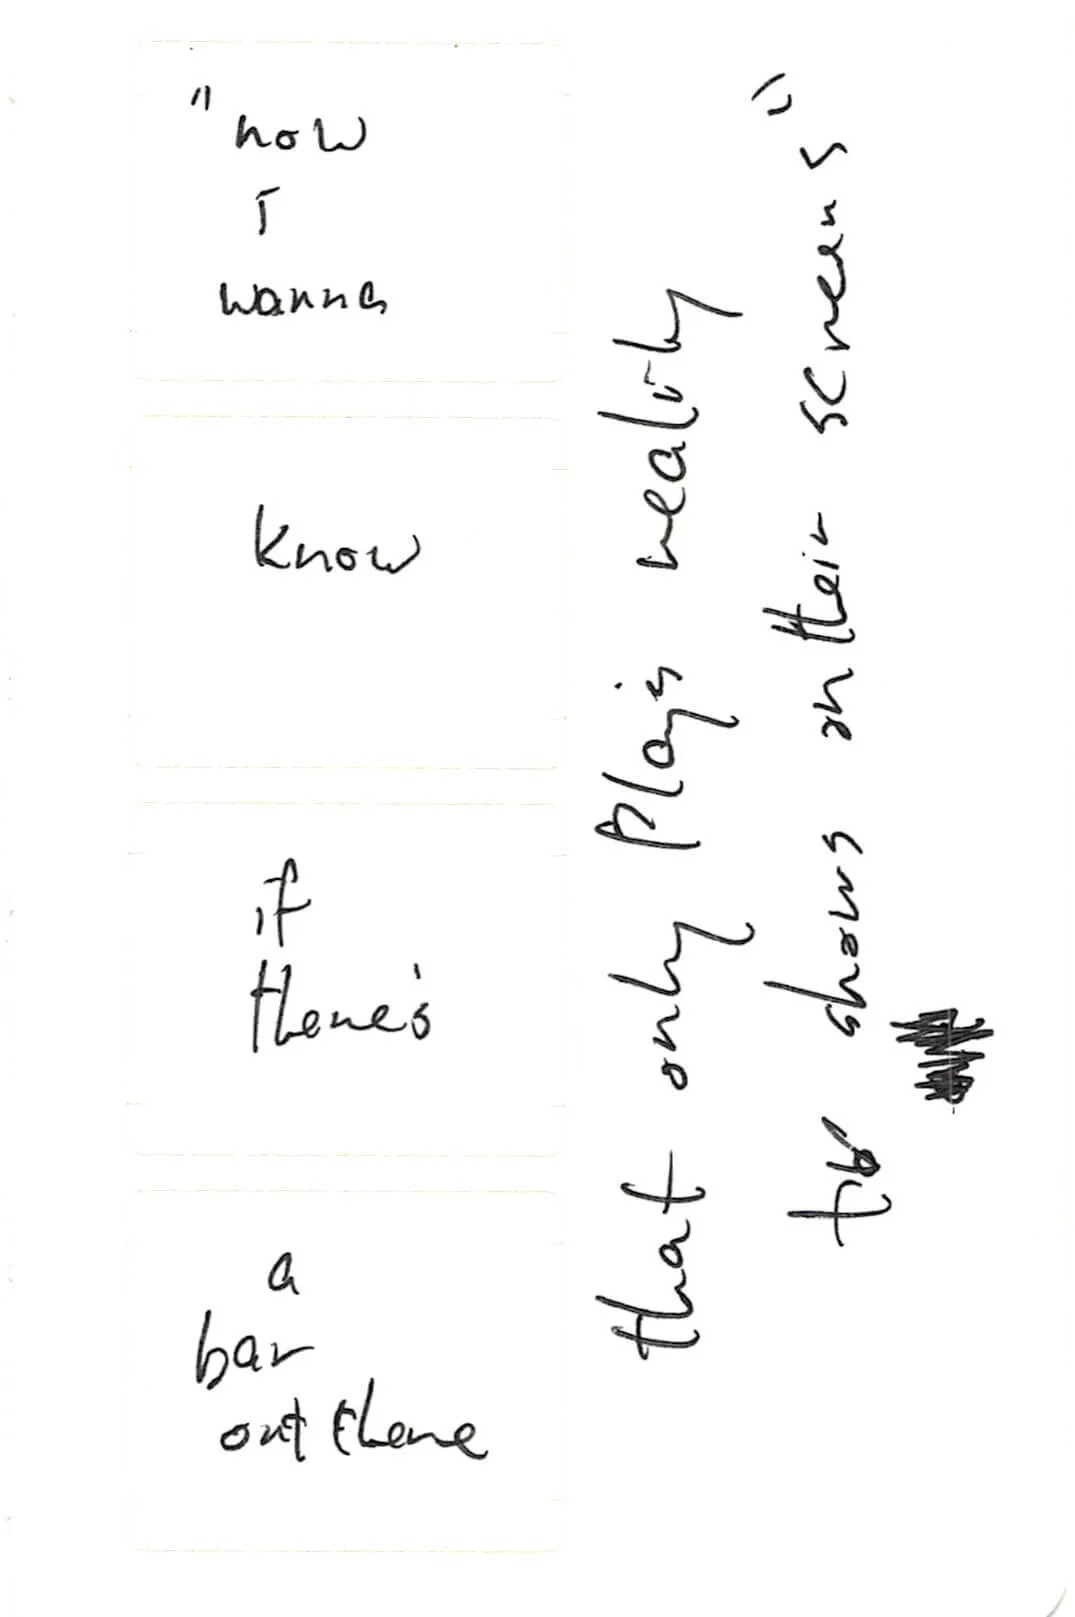 "now
I
wanna
know
if
there's
a
bar
out there
that only plays reality
tv shows on their screens"